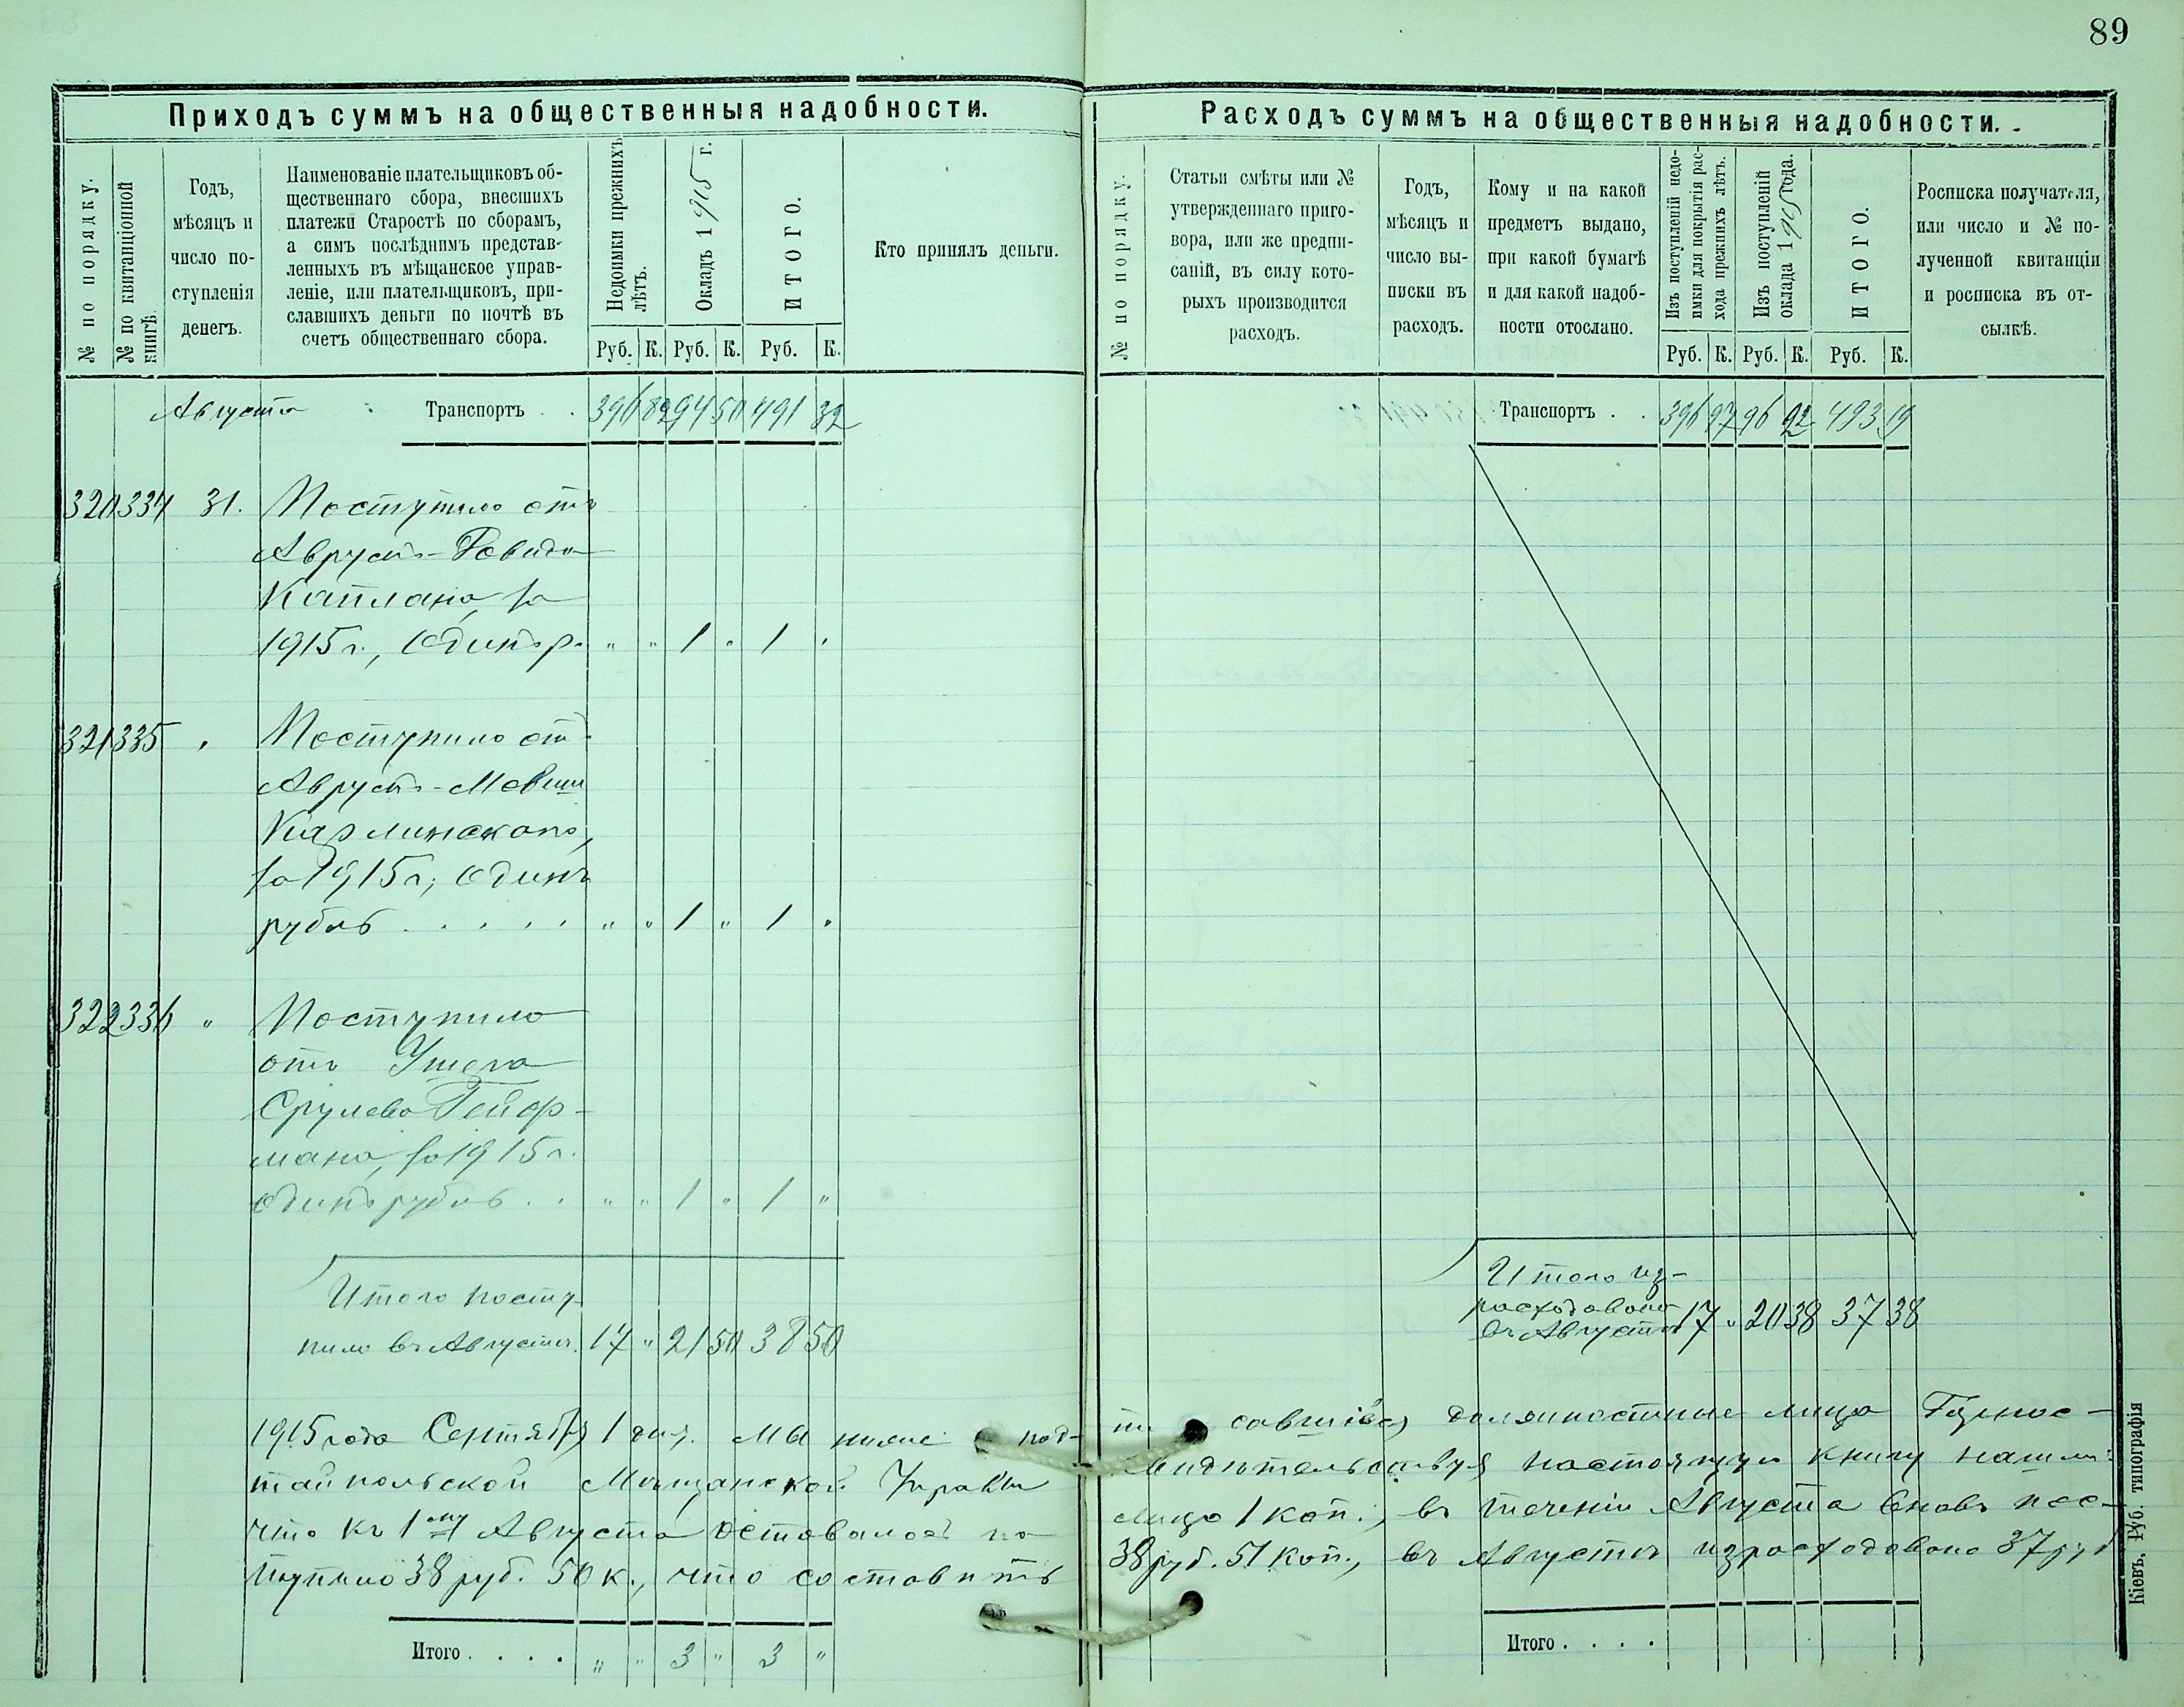 89
Приходъ суммъ на общественныя надобности.
№ по порядку.
№ по квитанціонной книгѣ.
Годъ,
мѣсяцъ и
число по-
ступленія
денегъ.
Наименованіе плательщиковъ об-
щественнаго сбора, внесшихъ
платежи Старостѣ по сборамъ,
а симъ послѣднимъ представ-
ленныхъ въ мѣщанское управ-
леніе, или плательщиковъ, при-
славшихъ деньги по почтѣ въ
счетъ общественнаго сбора.
Недоимки прежнихъ
лѣтъ.
Окладъ 1915 г.
ИТОГО.
Кто принялъ деньги.
Руб. К. Руб. К. Руб. К.
Августа Транспортъ . . 396 82 94 50 491 32
320 334 31. Поступило отъ
Каплана, за
1915 г., Одинъ р. " " 1 " 1 "
321 335 " Поступило отъ
Карлинскаго,
за 1915 г., Одинъ
рубль . . . . . " " 1 " 1 "
322 336 " Поступило
отъ Ушера
Срулева Гейф-
мана, за 1915 г.
Одинъ рубль . . " " 1 " 1 "
Итого посту-
пило въ Августѣ. 17 " 21 50 38 50
Расходъ суммъ на общественныя надобности.
№ по порядку.
Статьи смѣты или №
утвержденнаго приго-
вора, или же предпи-
саній, въ силу кото-
рыхъ производится
расходъ.
Годъ,
мѣсяцъ и
число вы-
писки въ
расходъ.
Кому и на какой
предметъ выдано,
при какой бумагѣ
и для какой надоб-
ности отослано.
Изъ поступленій недо-
имки для покрытія рас-
хода прежнихъ лѣтъ.
Изъ поступленій
оклада 1915 года.
ИТОГО.
Росписка получателя,
или число и № по-
лученной квитанціи
и росписка въ от-
сылкѣ.
Руб. К. Руб. К. Руб. К.
Транспортъ . . 396 97 96 92 493 19
Итого из-
расходовано
въ Августѣ 17 " 20 38 37 38
1915 года Сентября 1 дня. Мы ниже под- пи савшіеся должностные лица Горнос-
тайпольской Мѣщанской Управы свидѣтельствуя настоящую книгу нашли:
что къ 1му Августа оставалось на лицо 1 коп., въ теченіи Августа вновь пос-
тупило 38 руб. 50 к., что составитъ 38 руб. 51 коп., въ Августѣ израсходовано 37 руб
Итого . . . . " " 3 " 3 "
Итого . . . .
Кіевъ, Руб. типографія